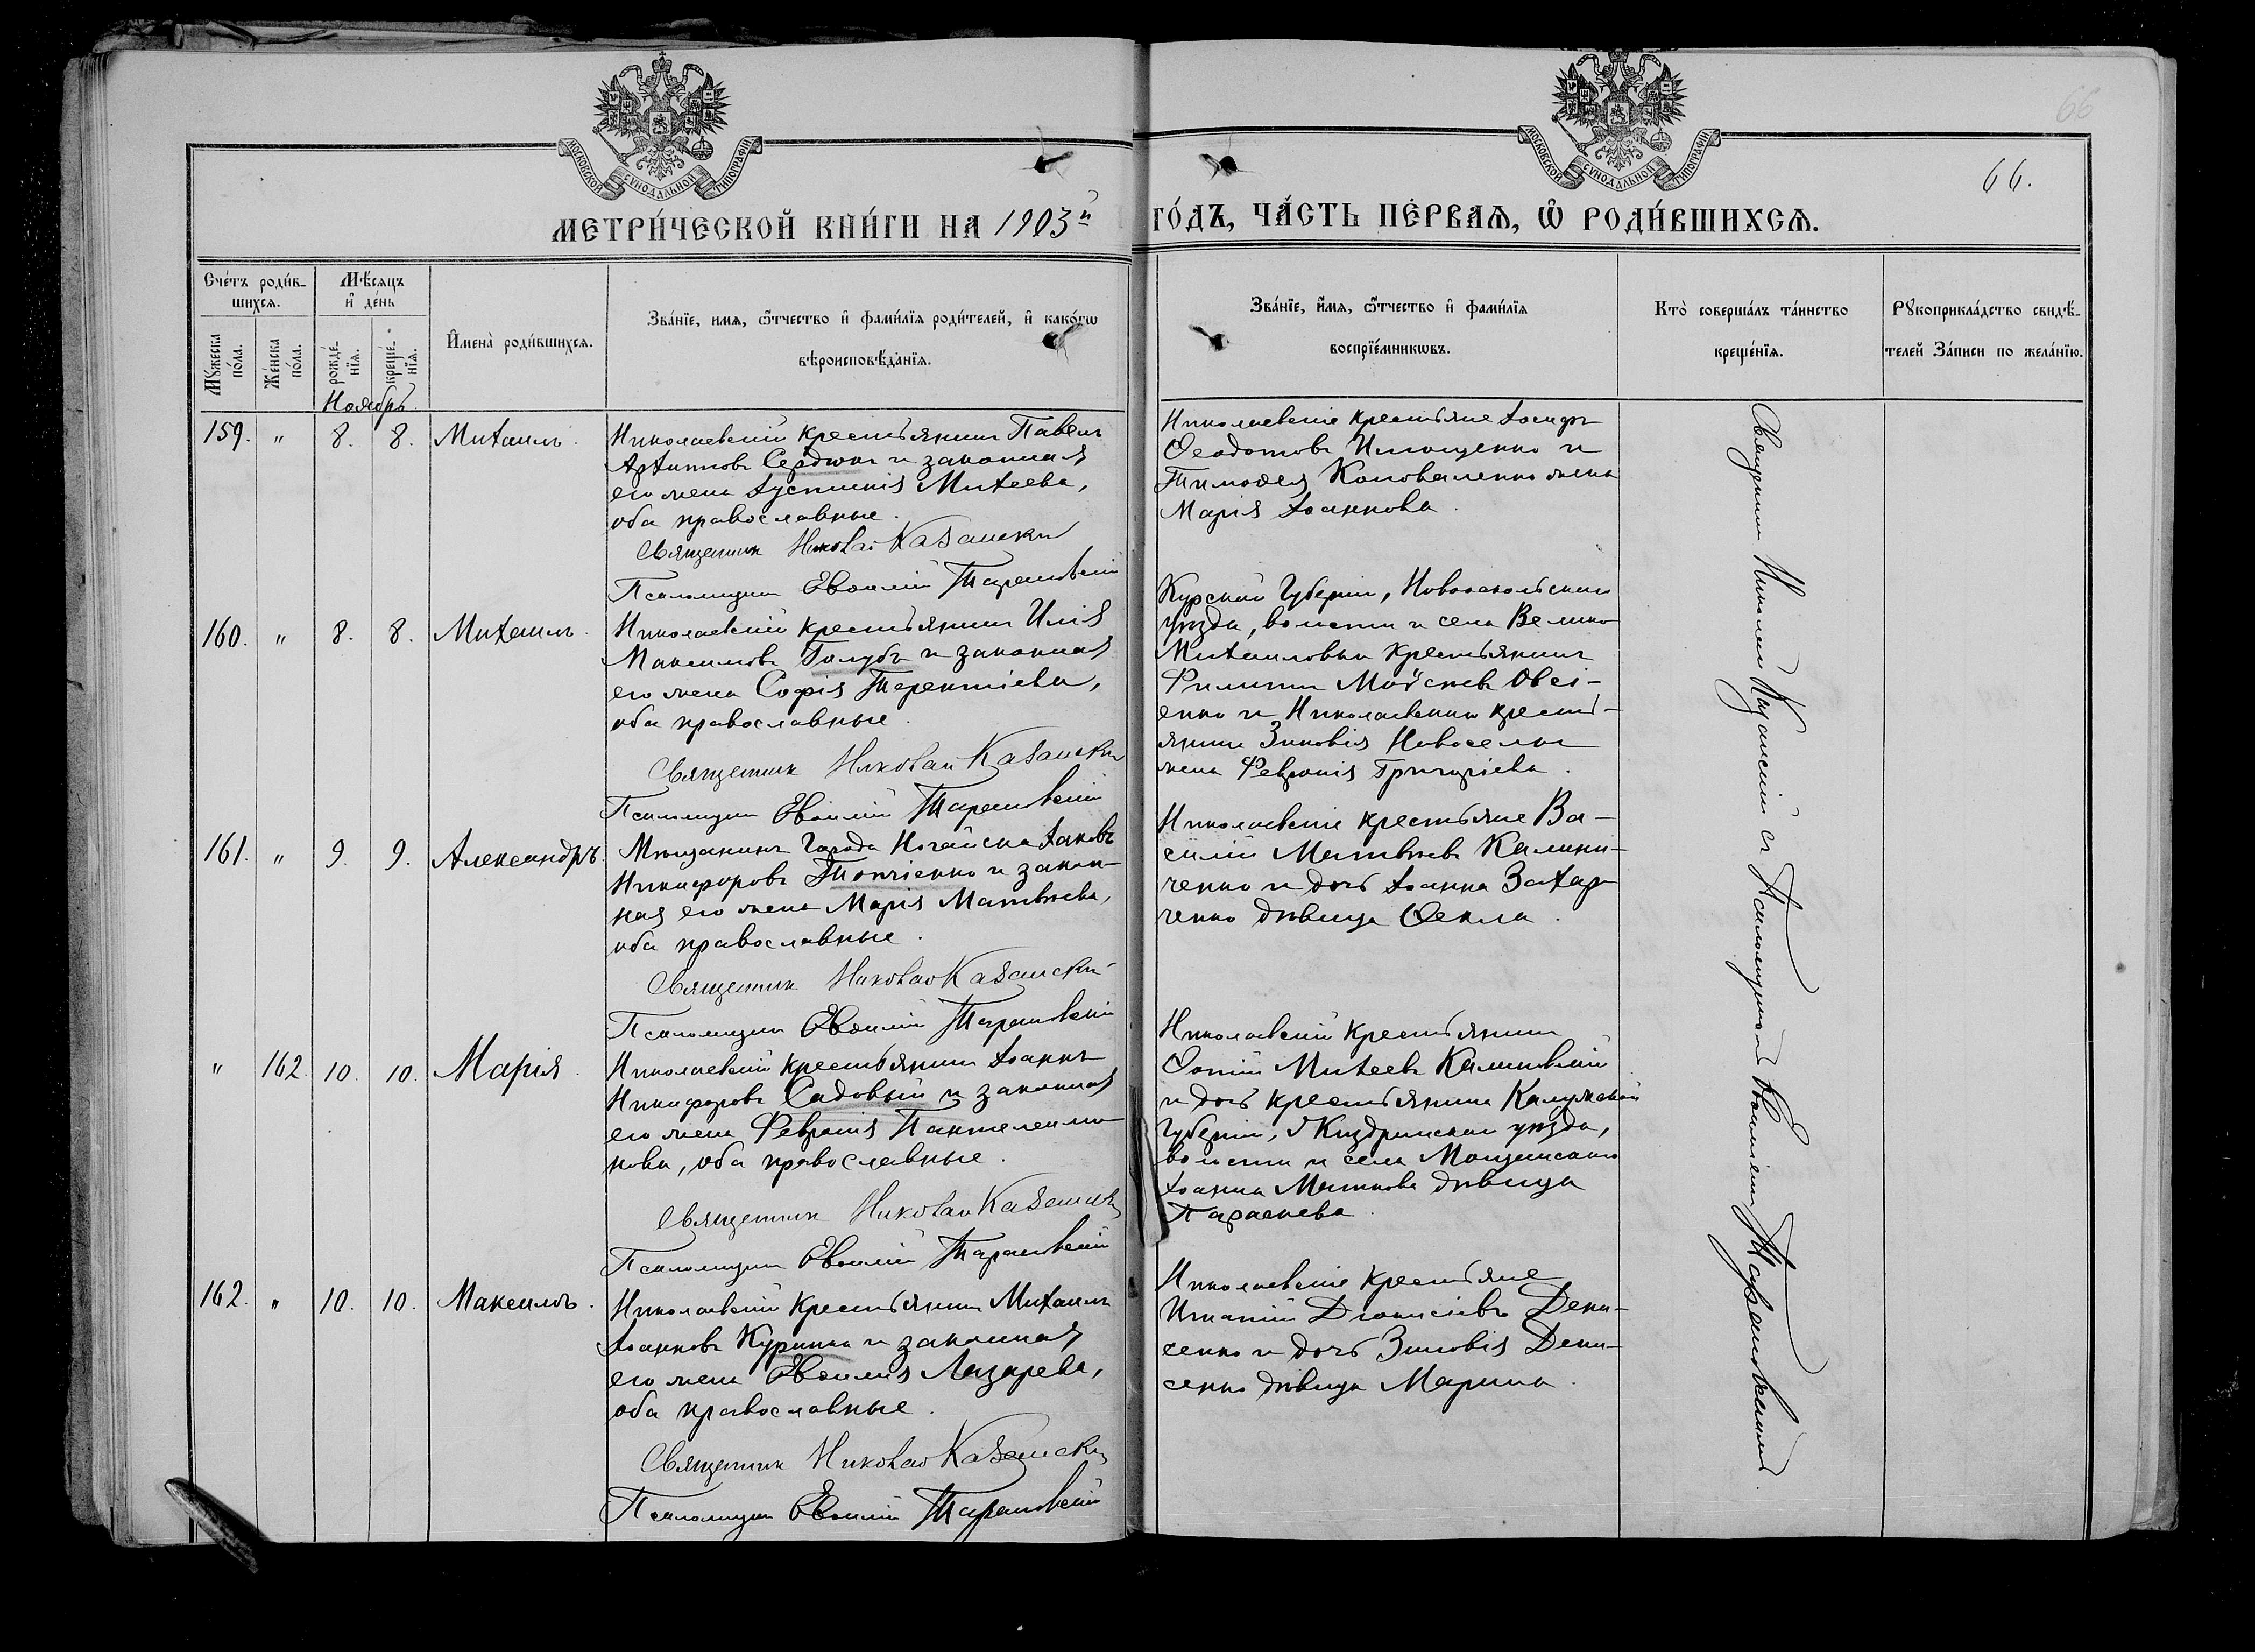 МОСКОВСКОЙ СѴНОДАЛЬНОЙ ТИПОГРАФІИ
МОСКОВСКОЙ СѴНОДАЛЬНОЙ ТИПОГРАФІИ
66
66.
МЕТРИ́ЧЕСКОЙ КНИ́ГИ НА 1903й
ГО́ДЪ, ЧА́СТЬ ПЕ́РВАѦ, Ѽ РОДИ́ВШИХСѦ.
Сче́тъ роди́в-
шихсѧ.
Мѣ́сѧцъ
и҆ де́нь
Мꙋ́жеска
по́ла.
Же́нска
по́ла.
рожде́-
нїѧ.
креще́-
нїѧ.
И҆мена̀ роди́вшихсѧ.
Зва́нїе, имѧ, ѻ҆́тчество и҆ фами́лїѧ роди́телей, и҆ како́гѡ
вѣроисповѣ́данїѧ.
Зва́нїе, и҆́мѧ, ѻ҆́тчество и҆ фами́лїѧ
воспрїе́мникѡвъ.
Кто̀ соверша́лъ та́инство
креще́нїѧ.
Рꙋкоприкла́дство свидѣ́-
телей За́писи по жела́нїю.
Ноябрь.
159. " 8. 8. Михаилъ.
Николаевскій крестьянинъ Павелъ
Архиповъ Сердюкъ и законная
его жена Іустинія Михеева,
оба православные.
Священник Николай Казанский
Псаломщикъ Евѳимій Тарановскій
Николаевскіе крестьяне Іосифъ
Ѳеодотовъ Ильющенко и
Тимоѳея Коноваленко жена
Марія Іоаннова.
160. " 8. 8. Михаилъ.
Николаевскій крестьянинъ Илія
Максимовъ Голубъ и законная
его жена Софія Терентіева,
оба православные.
Священник Николай Казанский
Псаломщикъ Евѳимій Тарановскій
Курской Губерніи, Новооскольскаго
уѣзда, волости и села Велико-
Михайловки крестьянинъ
Филиппъ Моѵсеевъ Овсі-
енко и Николаевскаго кресть-
янина Зиновія Новосела
жена Февронія Григоріева.
161. " 9. 9. Александръ.
Мѣщанинъ Города Ногайска Іаковъ
Никифоровъ Топчіенко и закон-
ная его жена Марія Матвѣева,
оба православные.
Священник Николай Казанский
Псаломщикъ Евѳимій Тарановскій
Николаевскіе крестьяне Ва-
силій Матвѣевъ Калини-
ченко и дочь Іоанна Захар-
ченко дѣвица Ѳекла.
" 162. 10. 10. Марія.
Николаевскій крестьянинъ Іоаннъ
Никифоровъ Садовый и законная
его жена Февронія Пантелеимо-
нова, оба православные.
Священник Николай Казанский
Псаломщикъ Евѳимій Тарановскій
Николаевскій крестьянинъ
Ѳотій Михеевъ Калиновскій
и дочь крестьянина Калужской
Губерніи, Жиздринскаго уѣзда,
волости и села
Іоанна дѣвица
Параскева.
162. " 10. 10. Максимъ.
Николаевскій крестьянинъ Михаилъ
Іоанновъ Куринна и законная
его жена Евѳимія Лазарева,
оба православные.
Священник Николай Казанский
Псаломщикъ Евѳимій Тарановскій
Николаевскіе крестьяне
Игнатій Діонисіевъ Дени-
сенко и дочь Зиновія Дени-
сенко дѣвица Марина.
Священникъ Николай Казанскій съ Псаломщикомъ Евѳиміемъ Тарановскимъ.